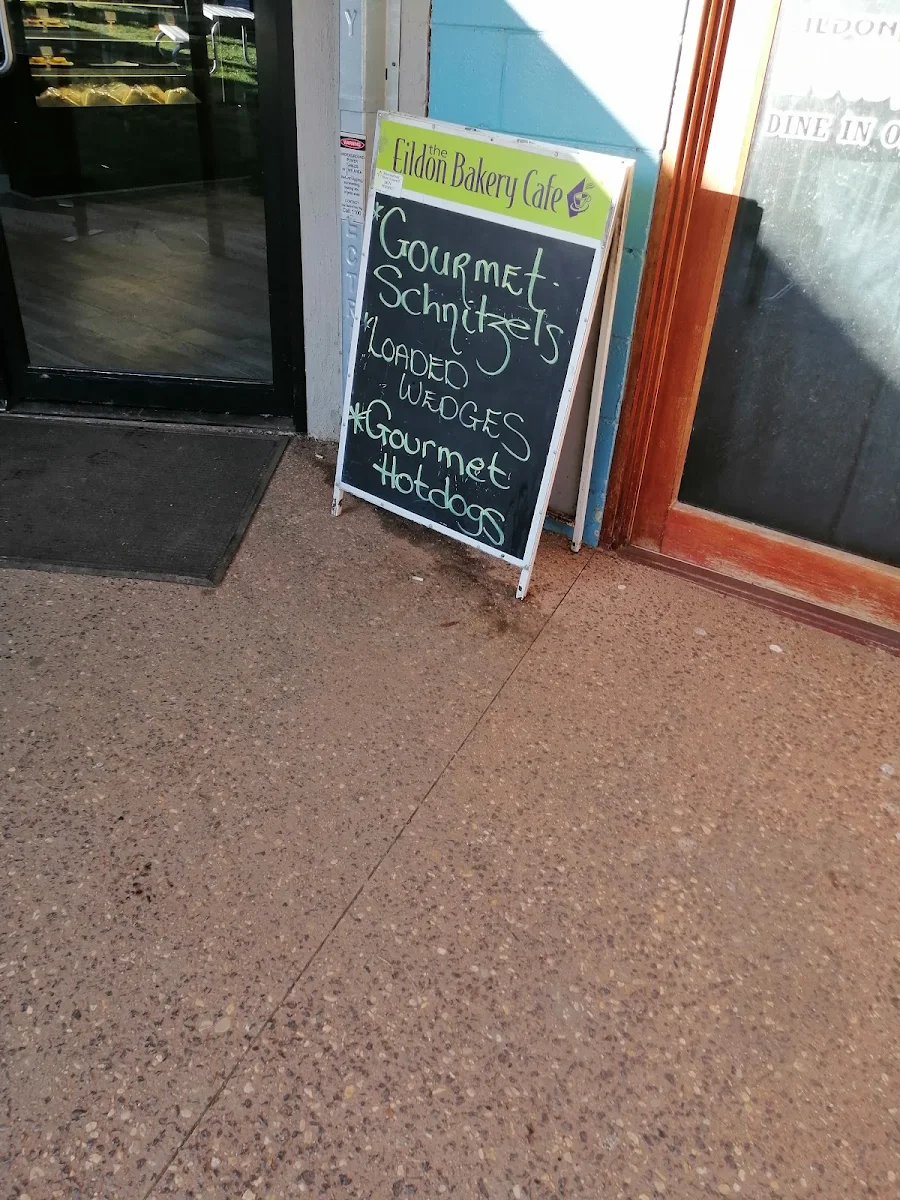 the
Eildon Bakery Cafe
*Gourmet
Schnitzels
*LOADED
WEDGES
*Gourmet
Hotdogs
DINE IN